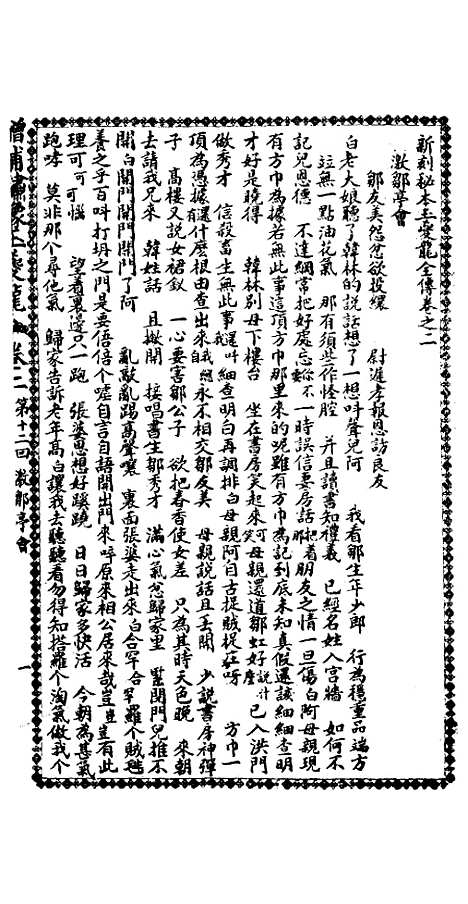 新刻秘本玉夔龍全傳卷之二
激鄒亭會
鄒友美怨忿欲投繯 尉遲孝報恩訪良友
白老大娘聽了韓林的說話想了一想呌聲兒阿 我看鄒生年少郎 行為穩重品端方
並無一點油花氣 那有須些作怪腔 并且讀書知禮義 已經名姓入宮牆 如何不
記兒恩德 不達網常把好處忘 你不一時誤信妻房話 把着朋友之情一旦傷白阿母親現
有方巾為據若無此事這頂方巾那里來的呢雖有方巾為記到底未知真假還該細細查明
才好是曉得 韓林別母下樓台 坐在書房笑起來 可笑母親還道鄒 好 說計已入洪門
做秀才 信殺畜生無此事 我還呌細查明白再調排白母親阿自古捉賊捉 呀 方巾一
頂為憑據有還什麽根由查出來自 我想永不相交鄒友美 母親說話且丟開 少說書房神彈
子 高樓又說女裙釵 一心要害鄒公子 欲把春香使女差 只為其時天色晚 來朝
去請我兄來 韓姓話 且撇開 接唱書生鄒秀才 滿心氣忿歸家里 墅閉門兒推不
開白開門開門開門了阿 亂敲亂踢高聲嚷 裏面張婆走出來白合罕合罕羅個賊
養之乎百呌打坍之門是要俉倍个嘘自言自語開出門來呀原來相公居來哉豈豈豈有此
理可可可惱 望着裏邊只一跑 張婆思想好蹊蹺 日日歸家多快活 今朝為甚氣
跑哮 莫非那个尋他氣 歸家告訴老年高白讓我去聽聽看勿得知搭羅个淘氣做我个
夔龍 卷二 第十二回 激鄒亭會 一